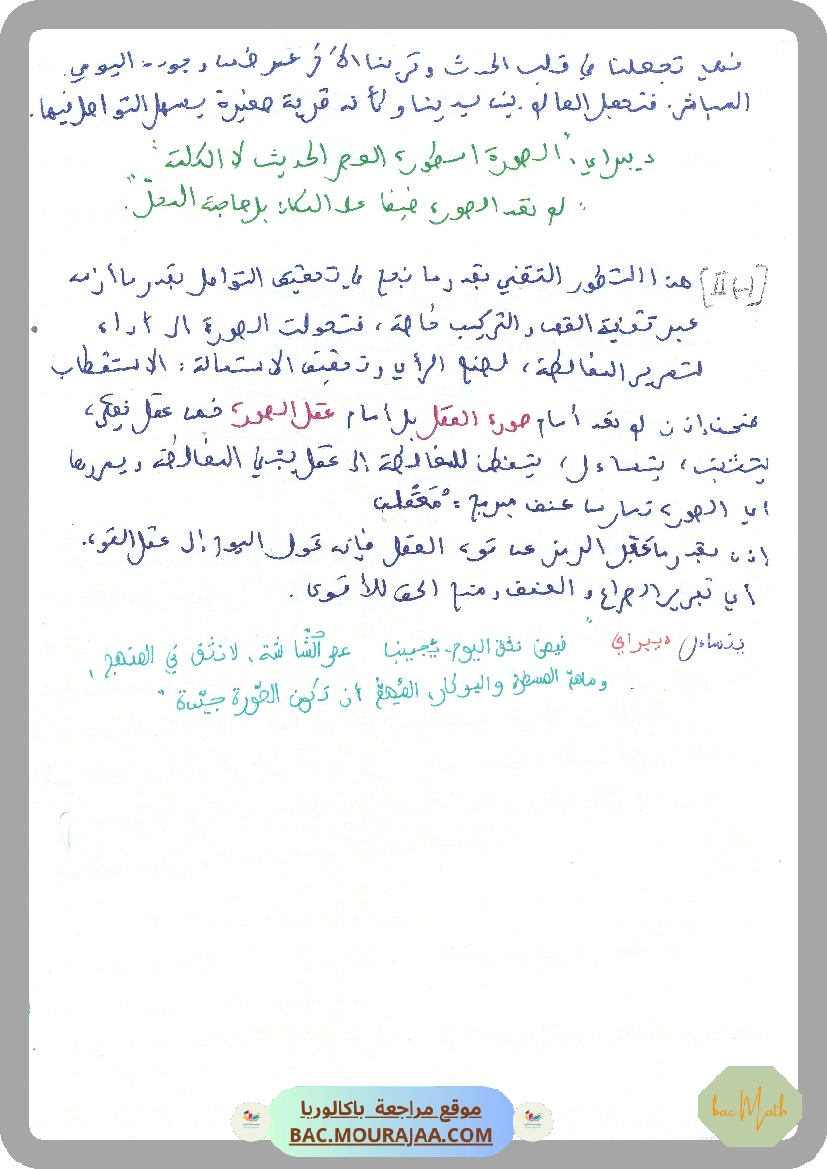 فهي تجعلنا في قلب الحدث وترينا الآخر عبر اليومي
المباشر. فتجعل العالم بين يدينا وكأنه قرية صغيرة يسهل التواصل فيها.
ديبراي: "الصورة اسطورة العصر الحديث لا الكلمة"
"لم تعد الصورة ضيفا على المكان بل صاحبة المحلّ".
II (-1) هذا التطور التقني بقدر ما نجح في تحقيق التواصل بقدر ما أزمه
عبر تقنية القص والتركيب خاصة، فتحولت الصورة الى أداة
لتمرير المغالطة، لصنع الرأي وتحقيق الاستمالة: الاستقطاب
فنحن إذن لم نعد أمام صورة العقل بل أمام عقل الصورة فمن عقل نقدي،
يتثبت، يتساءل، يتفطن للمغالطة إلى عقل يتبنى المغالطة ويمررها
أي الصورة تمارس عنف مبرمج = مُعَقْلن
إذن بقدر ما الرمز عن قوة العقل فإنه تحول اليوم إلى عقل القوة.
أي تبرير الصراع والعنف ومنح الحق للأقوى.
يتساءل ديبراي "فيمن نثق اليوم يجيبنا على الشّاشة، لا نثق في المنهج،
وما همّ المسطرة والبوكار، المُهِمُّ أن تكون الصّورة جيّدة"
موقع مراجعة باكالوريا
BAC.MOURAJAA.COM
bac Math